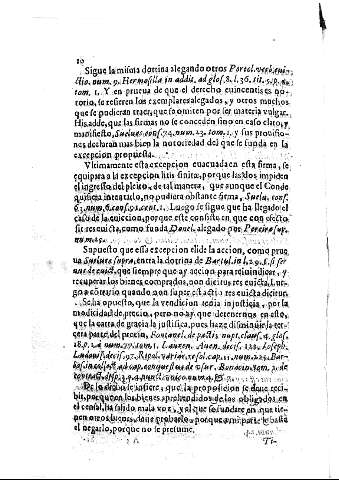 10
Sigue la misma dotrina alegando otros Portol. verb.
num. 9. Hermosilla in addit. ad glos. 8. l. 36. tit. 5. p.
tom. 1. Y en prueua de que el derecho euincentis es no-
torio, se refieren los exemplares alegados, y otros muchos
que se pudieran traer, que se omiten por ser materia vulgar.
His adde, que las firmas no se conceden sino en caso claro, y
manifiesto, Suelues cons. 74. num. 23. tom. 1. y sus prouisio-
nes declaran mas bien la notoriedad del que se funda en la
excepcion propuesta.
Vltimamente esta excepcion euacuada en esta firma, se
equipara a la excepcion litis finitæ, porque las dos impiden
el ingresso del pleito, de tal manera, que aunque el Conde
quisiera intentarlo, no pudiera obstante firma, Suelu. cons.
63. num. 6. cons. 91. cent. 1. Luego se sigue que ha llegado el
caso de la euiccion, porque este consiste en que con efecto
sit res euicta, como funda Douel. alegado por Pereira sup.
num.
Supuesto que esta excepcion elide la accion, como prue-
ua Suelues supra, entra la dotrina de Bartul. in l. 29. §. si ser
que siempre que ay accion para reiuindicar, y
recuperar los bienes comprados, non dicitur res euicta. Lue-
go a contrario quando non superest actio res euicta dicitur.
Se ha opuesto, que la vendicion tenia injusticia, por la
modicidad de precio, pero no ay que detenernos en esto,
que la carta de gracia la justifica, pues haze disminuir la ter-
cera parte del precio, Fontanel. de pactis nupt. claus. 4. glos.
18. p. 2. num. 77. tom. 1. Lauren. decis. 122. Ioseph.
Ludouis. decis. 97. Ripol. variar. resol. cap. 11. num.
in collect. ad cap. de vsur. tom. 2. de
num. 4.
De lo dicho se infiere, que la proposicion se deue reci-
bir, porque en los bienes aprehendidos de los obligados en
el censal, ha salido mala voz, y el que se funda en que tie-
nen otros bienes, deue prouarlo, porque a mi parte le basta
el negarlo, porque no se presume.
Ti-